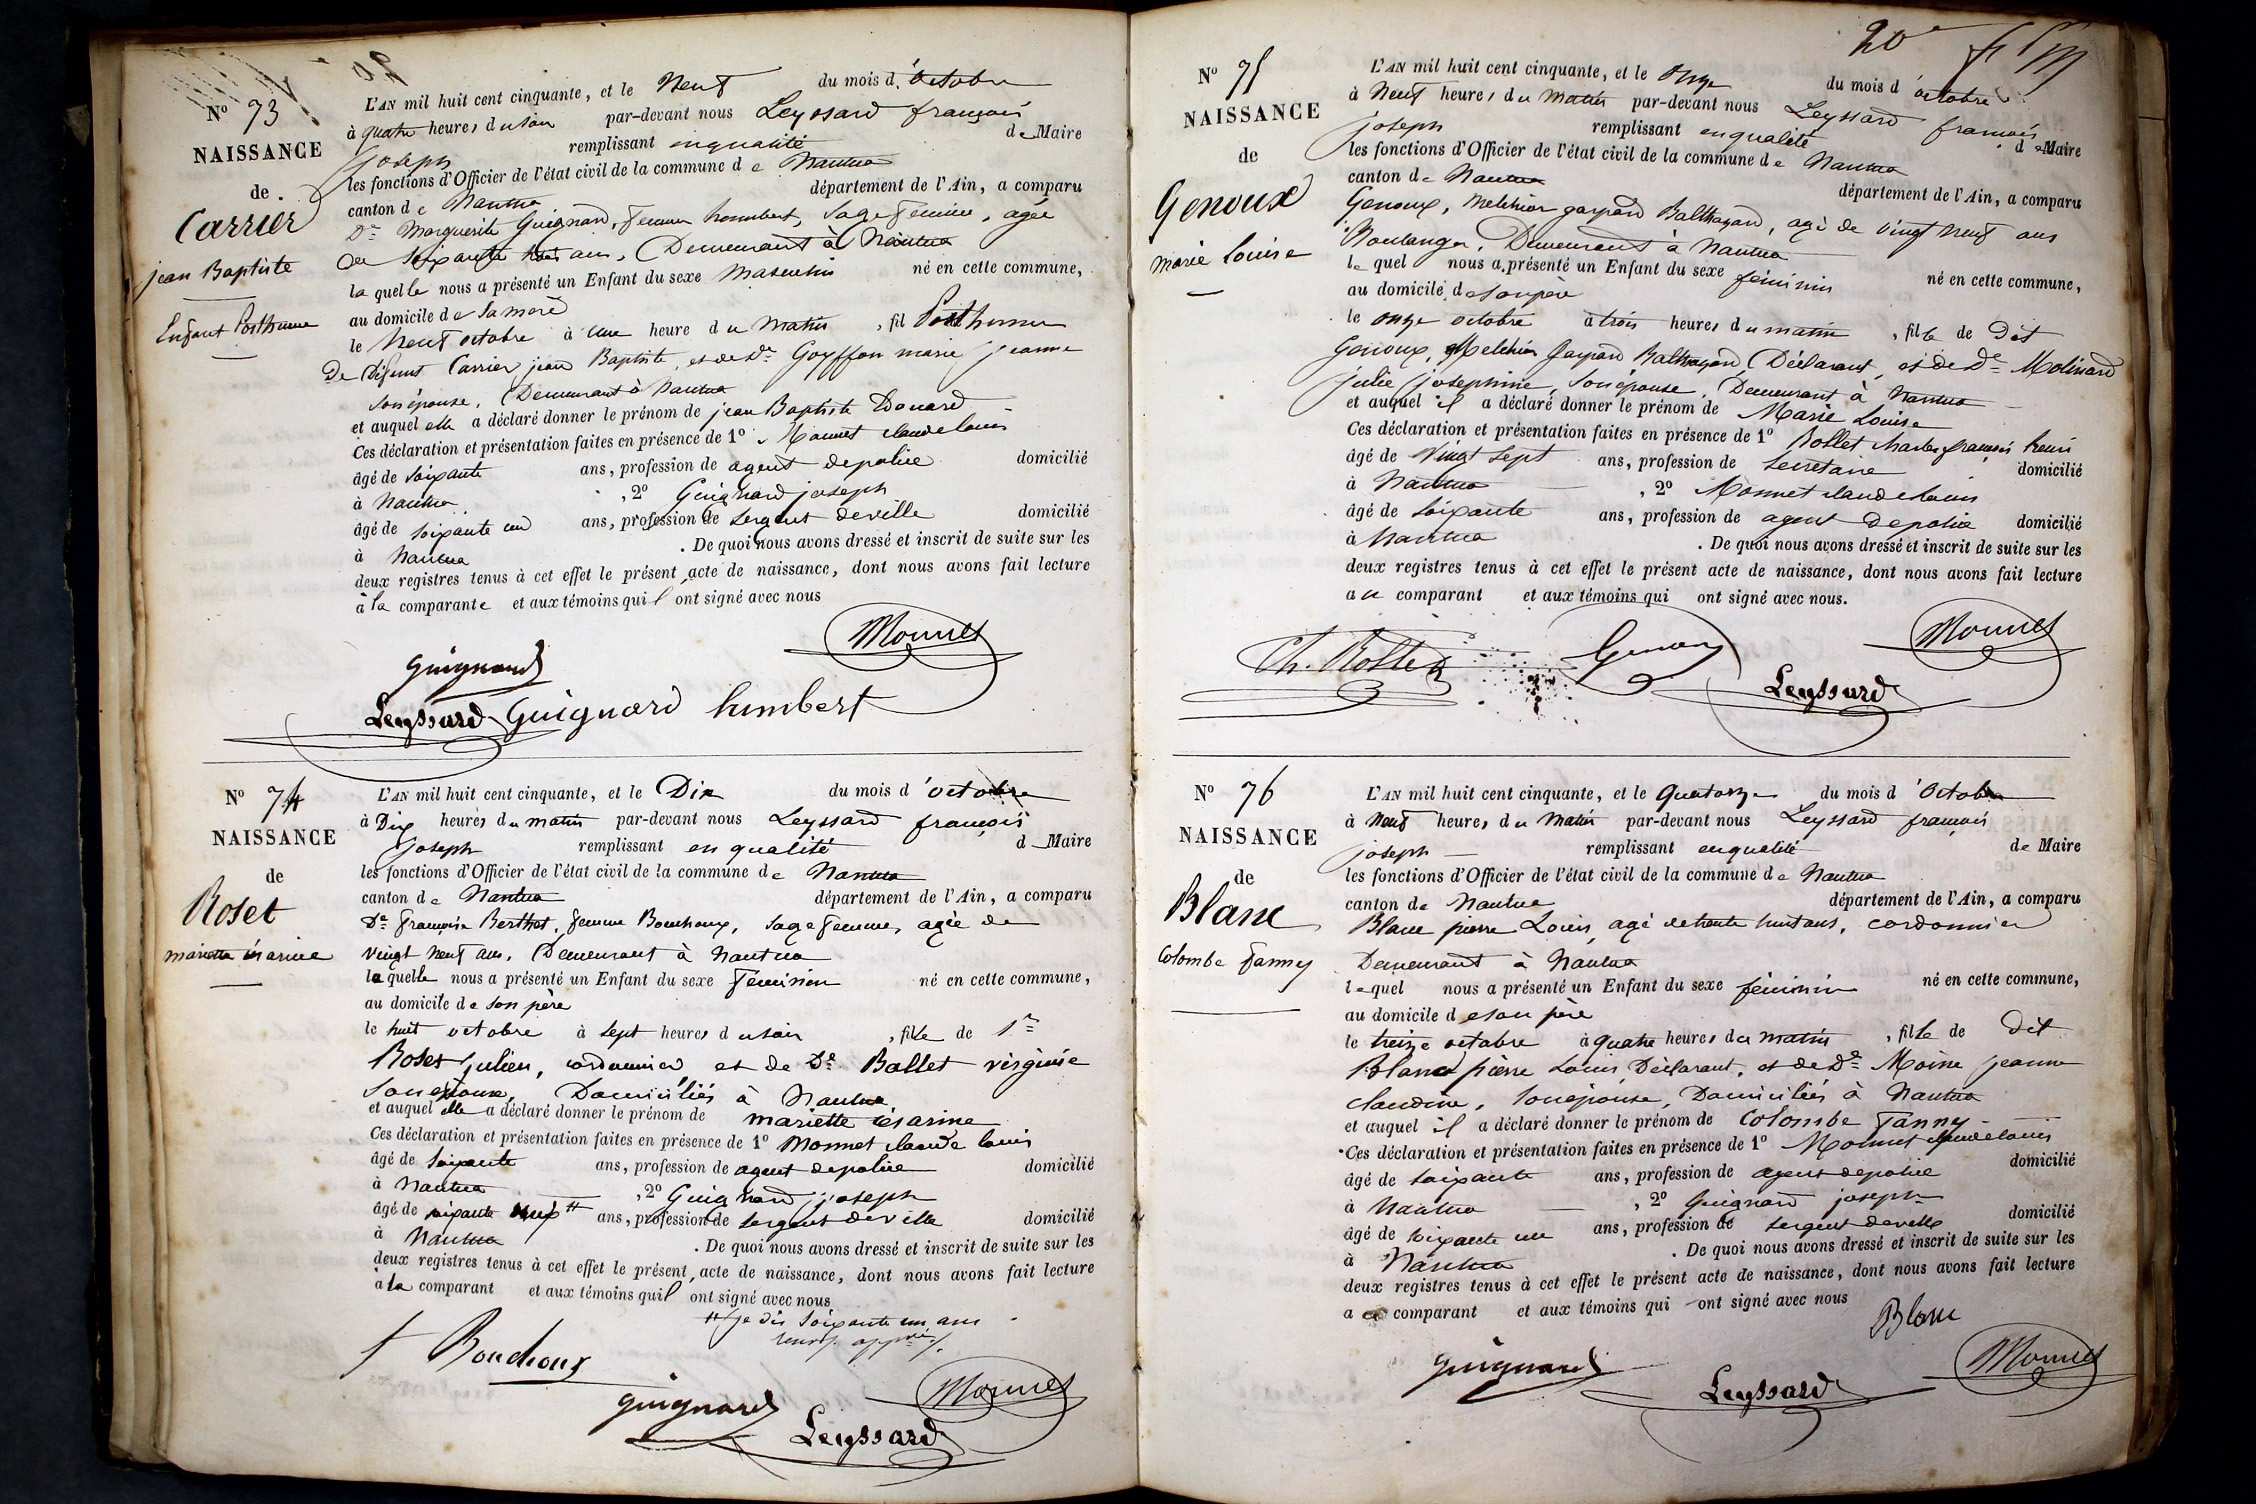 N° 73
NAISSANCE
de
Carrier
jean Baptiste
Enfant Posthume
L'AN mil huit cent cinquante, et le Neuf du mois d'Octobre
à quatre heures du soir par-devant nous Leyssard françois
joseph remplissant en qualité de Maire
les fonctions d'Officier de l'état civil de la commune de Nantua
canton de Nantua département de l'Ain, a comparu
De Marguerite Guignard, femme humbert, Sage femme, agée
de soixante huit ans, Demeurant à Nantua
laquelle nous a présenté un Enfant du sexe Masculin né en cette commune,
au domicile de sa mère
le Neuf octobre à une heure du matin, fil Posthume
De Défunt Carrier jean Baptiste, et de De Goyffon marie jeanne
son épouse, Demeurant à Nantua
et auquel elle a déclaré donner le prénom de jean Baptiste Edouard
Ces déclaration et présentation faites en présence de 1° Monnet claude louis
âgé de soixante ans, profession de agent de police domicilié
à Nantua, 2° Guignard joseph
âgé de soixante un ans, profession de sergent de ville domicilié
à Nantua. De quoi nous avons dressé et inscrit de suite sur les
deux registres tenus à cet effet le présent acte de naissance, dont nous avons fait lecture
à la comparante et aux témoins qui ont signé avec nous
Monnet
Guignard
Leyssard Guignard humbert
N° 74
NAISSANCE
de
Roset
mariette césarine
L'AN mil huit cent cinquante, et le Dix du mois d'octobre
à Dix heures du matin par-devant nous Leyssard françois
joseph remplissant en qualité d Maire
les fonctions d'Officier de l'état civil de la commune de Nantua
canton de Nantua département de l'Ain, a comparu
De françoise Berthet, femme Bouchoux, sage femme, agée de
vingt neuf ans, Demeurant à Nantua
laquelle nous a présenté un Enfant du sexe féminin né en cette commune,
au domicile de son père
le huit octobre à sept heures du soir, fille de Sr
Roset julien, cordonnier et de De Ballet virginie
son épouse, Domiciliés à Nantua
et auquel elle a déclaré donner le prénom de mariette césarine
Ces déclaration et présentation faites en présence de 1° Monnet claude louis
âgé de soixante ans, profession de agent de police domicilié
à Nantua, 2° Guignard joseph
âgé de soixante ans, profession de sergent de ville domicilié
à Nantua. De quoi nous avons dressé et inscrit de suite sur les
deux registres tenus à cet effet le présent acte de naissance, dont nous avons fait lecture
à la comparant et aux témoins qui ont signé avec nous
je dis soixante un ans
f Bouchoux
Guignard Monnet
Leyssard
20e
N° 75
NAISSANCE
de
Genoux
marie Louise
L'AN mil huit cent cinquante, et le onze du mois d'octobre
à Neuf heures du matin par-devant nous Leyssard françois
joseph remplissant en qualité de Maire
les fonctions d'Officier de l'état civil de la commune de Nantua
canton de Nantua département de l'Ain, a comparu
Genoux, Melchior gaspard Balthazard, agé de vingt neuf ans
Boulanger, Demeurant à Nantua
lequel nous a présenté un Enfant du sexe féminin né en cette commune,
au domicile de son père
le onze octobre à trois heures du matin, fille de Dit
Genoux, Melchior Gaspard Balthazard, Déclarant, et de De Molinard
julie josephine, son épouse, Demeurant à Nantua
et auquel il a déclaré donner le prénom de Marie Louise
Ces déclaration et présentation faites en présence de 1° Rollet charles françois henri
âgé de vingt sept ans, profession de secrétaire domicilié
à Nantua, 2° Monnet claude louis
âgé de soixante ans, profession de agent de police domicilié
à Nantua. De quoi nous avons dressé et inscrit de suite sur les
deux registres tenus à cet effet le présent acte de naissance, dont nous avons fait lecture
au comparant et aux témoins qui ont signé avec nous.
Ch. Rollet Genoux Monnet
Leyssard
N° 76
NAISSANCE
de
Blanc
Colombe Fanny
L'AN mil huit cent cinquante, et le Quatorze du mois d'Octobre
à Neuf heures du matin par-devant nous Leyssard françois
joseph remplissant en qualité de Maire
les fonctions d'Officier de l'état civil de la commune de Nantua
canton de Nantua département de l'Ain, a comparu
Blanc pierre Louis, agé de trente huit ans, cordonnier
Demeurant à Nantua
lequel nous a présenté un Enfant du sexe féminin né en cette commune,
au domicile de son père
le treize octobre à quatre heures du matin, fille de Dit
Blanc pierre Louis, Déclarant, et de De Moine jeanne
claudine, son épouse, Domiciliés à Nantua
et auquel il a déclaré donner le prénom de Colombe Fanny
Ces déclaration et présentation faites en présence de 1° Monnet claude louis
âgé de soixante ans, profession de agent de police domicilié
à Nantua, 2° Guignard joseph
âgé de soixante un ans, profession de sergent de ville domicilié
à Nantua. De quoi nous avons dressé et inscrit de suite sur les
deux registres tenus à cet effet le présent acte de naissance, dont nous avons fait lecture
a comparant et aux témoins qui ont signé avec nous
Blanc
Guignard Leyssard Monnet